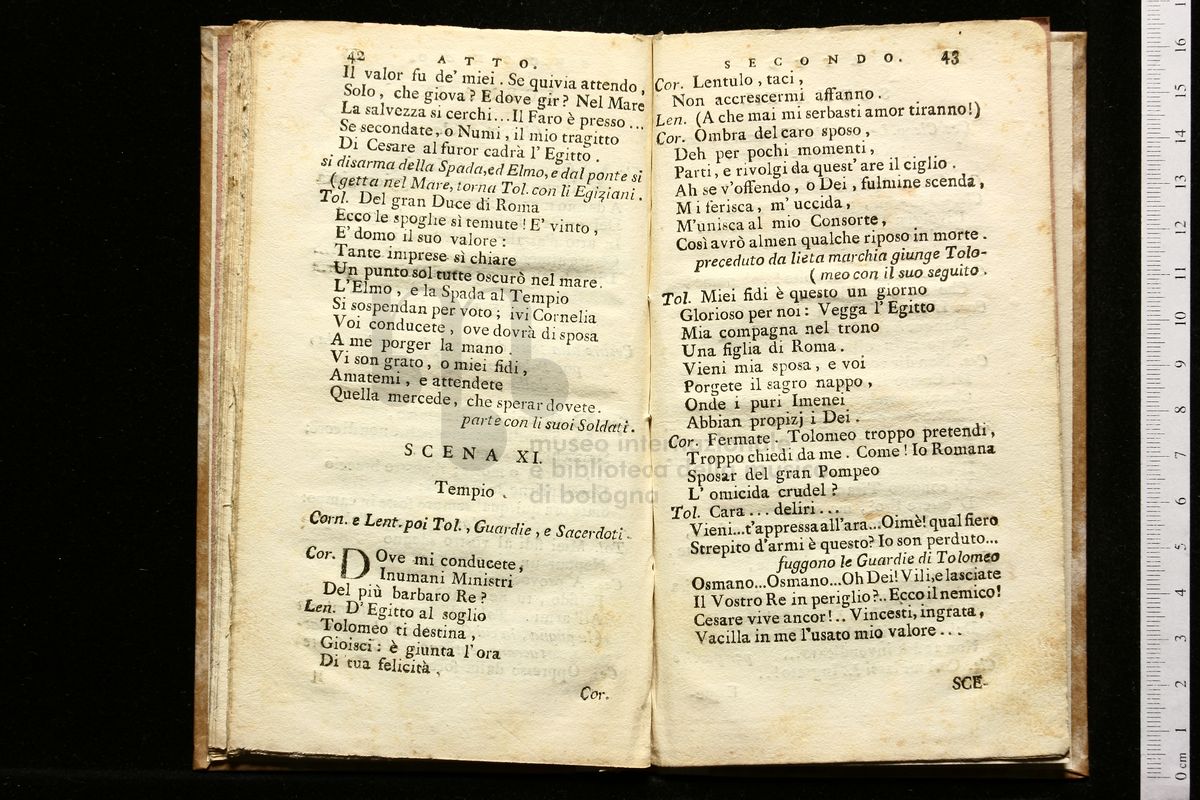 42 ATTO.
Il valor fu de' miei. Se quivia attendo,
Solo, che giova? E dove gir? Nel Mare
La salvezza si cerchi... Il Faro è presso...
Se secondate, o Numi, il mio tragitto
Di Cesare al furor cadrà l'Egitto.
si disarma della Spada, ed Elmo, e dal ponte si
(getta nel Mare, torna Tol. con li Egiziani.
Tol. Del gran Duce di Roma
Ecco le spoglie sì temute! E' vinto,
E' domo il suo valore:
Tante imprese sì chiare
Un punto sol tutte oscurò nel mare.
L'Elmo, e la Spada al Tempio
Si sospendan per voto; ivi Cornelia
Voi conducete, ove dovrà di sposa
A me porger la mano.
Vi son grato, o miei fidi,
Amatemi, e attendete
Quella mercede, che sperar dovete.
parte con li suoi Soldati.
SCENA XI.
Tempio.
Corn. e Lent. poi Tol., Guardie, e Sacerdoti.
Cor. DOve mi conducete,
Inumani Ministri
Del più barbaro Re?
Len. D'Egitto al soglio
Tolomeo ti destina,
Gioisci: è giunta l'ora
Di tua felicità.
Cor.
SECONDO. 43
Cor. Lentulo, taci,
Non accrescermi affanno.
Len. (A che mai mi serbasti amor tiranno!)
Cor. Ombra del caro sposo,
Deh per pochi momenti,
Parti, e rivolgi da quest' are il ciglio.
Ah se v'offendo, o Dei, fulmine scenda,
Mi ferisca, m'uccida,
M'unisca al mio Consorte,
Così avrò almen qualche riposo in morte.
preceduto da lieta marchia giunge Tolo-
(meo con il suo seguito.
Tol. Miei fidi è questo un giorno
Glorioso per noi: Vegga l'Egitto
Mia compagna nel trono
Una figlia di Roma.
Vieni mia sposa, e voi
Porgete il sagro nappo,
Onde i puri Imenei
Abbian propizj i Dei.
Cor. Fermate. Tolomeo troppo pretendi,
Troppo chiedi da me. Come! Io Romana
Sposar del gran Pompeo
L'omicida crudel?
Tol. Cara... deliri...
Vieni...t'appressa all'ara...Oimè! qual fiero
Strepito d'armi è questo? Io son perduto...
fuggono le Guardie di Tolomeo
Osmano...Osmano...Oh Dei! Vili, e lasciate
Il Vostro Re in periglio?.. Ecco il nemico!
Cesare vive ancor!.. Vincesti, ingrata,
Vacilla in me l'usato mio valore...
SCE-
museo internazionale
e biblioteca della musica
di bologna
0 cm 1 2 3 4 5 6 7 8 9 10 11 12 13 14 15 16